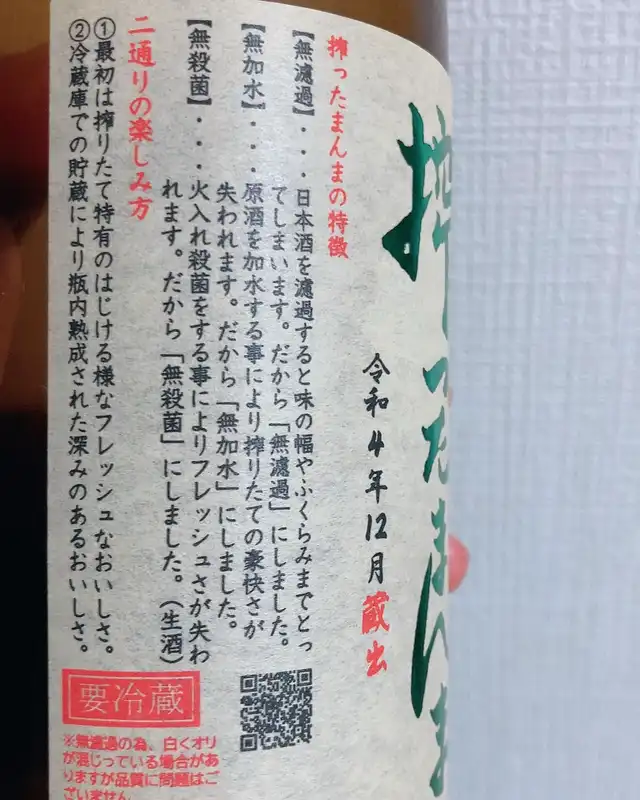 搾ったまんま
令和4年12月蔵出
搾ったまんまの特徴
【無濾過】・・・日本酒を濾過すると味の幅やふくらみまでとっ
てしまいます。だから「無濾過」にしました。
【無加水】・・・原酒を加水する事により搾りたての豪快さが
失われます。だから「無加水」にしました。
【無殺菌】・・・火入れ殺菌をする事によりフレッシュさが失わ
れます。だから「無殺菌」にしました。(生酒)
二通りの楽しみ方
①最初は搾りたて特有のはじける様なフレッシュなおいしさ。
②冷蔵庫での貯蔵により瓶内熟成された深みのあるおいしさ。
要冷蔵
※無濾過の為、白くオリ
が混じっている場合があ
りますが品質に問題はご
ざいません